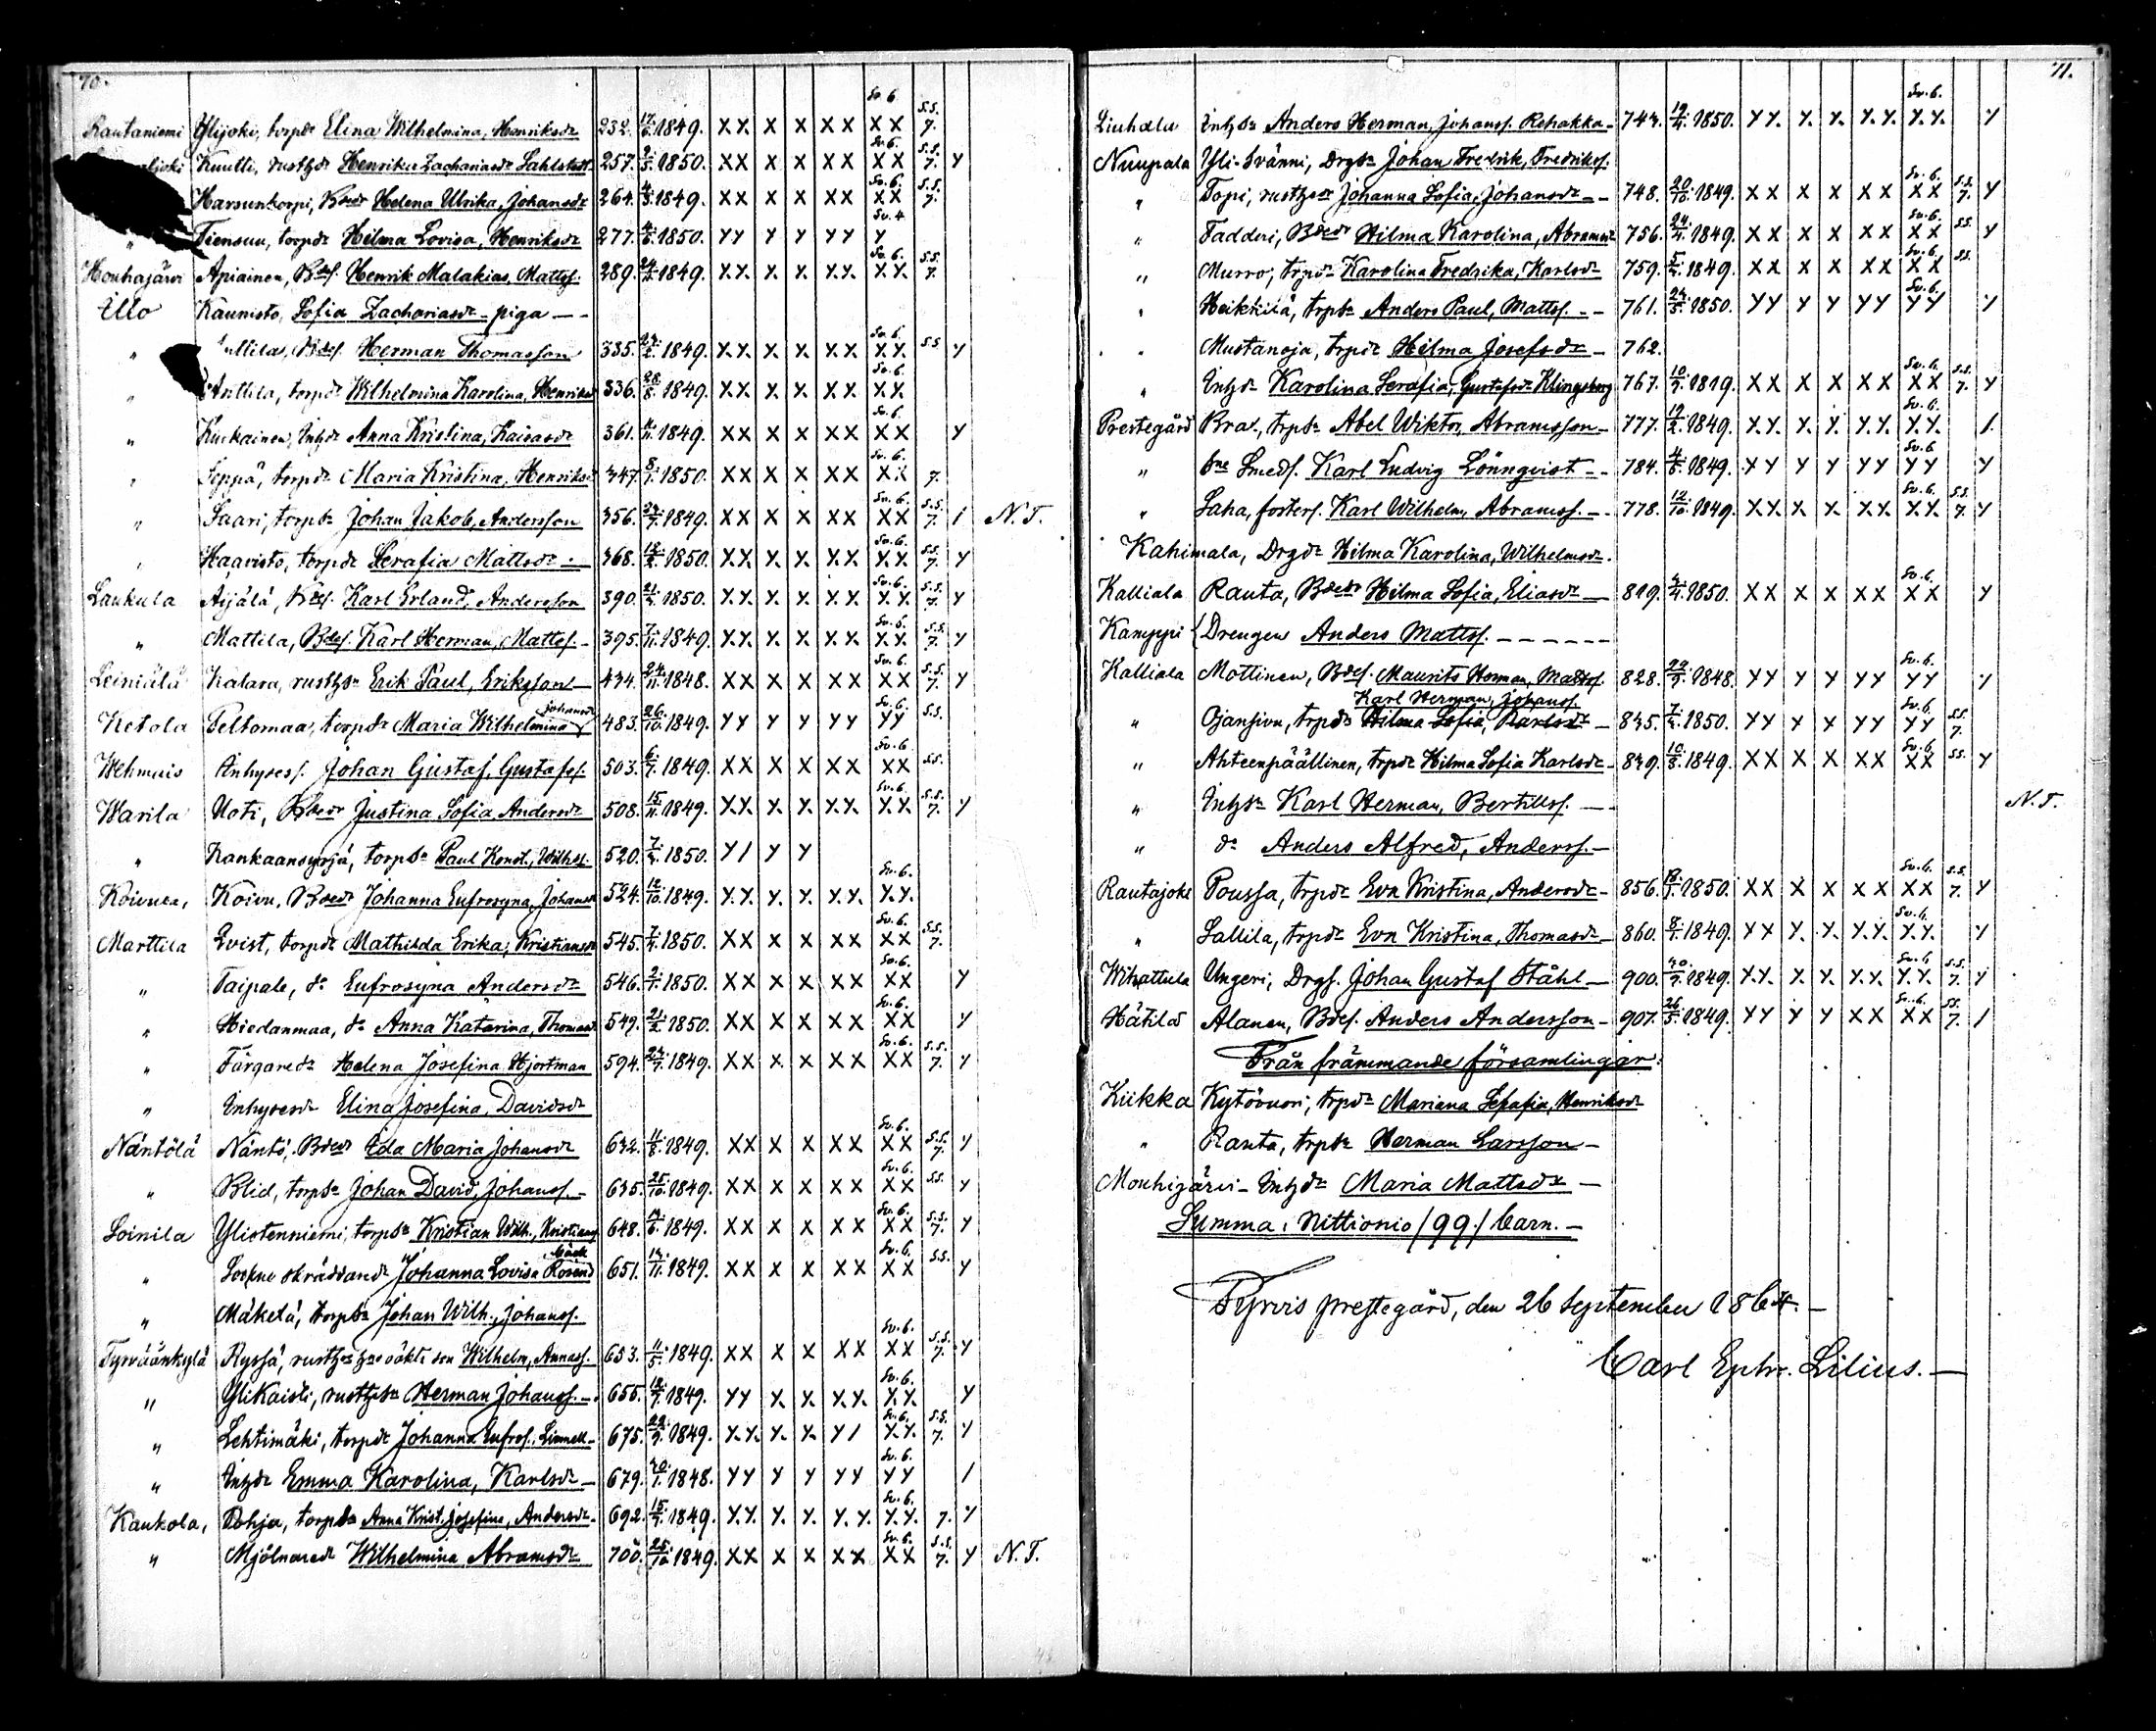 70.
Rautaniemi Ylijoki, torpdr Elina Wilhelmina, Henriksdr 232. 1849. XX X X XX Sv. 6. XX S.S. 7.
Kuutti, rusthdr Henrika Zachariasdr Sahlstedt 257. 1850. XX X X XX Sv. 6. XX S.S. 7. Y
Harsunkorpi, Bdedr Helena Ulrika, Johansdr 264. 4/3. 1849. XX X X XX Sv. 6. XX S.S. 7.
" Tiensuu, torpdr Hilma Lovisa, Henriksdr 277. 1850. YY Y Y YY Sv. 4 Y
Houhajärvi Apiainen, Bdes. Henrik Malakias, Mattss. 289. 1849. XX. X. X. XX. Sv. 6. XX S.S. 7.
Illo Kaunisto, Sofia Zachariasdr - piga - -
" Bdes. Herman Thomasson 335. 1849. XX. X. X. XX. Sv. 6. XX. S.S. Y
" Anttila, torpdr Wilhelmina Karolina, Henriksdr 336. 28/8. 1849. XX. X. X. XX. Sv. 6. XX.
" Kuckainen, Inhdr Anna Kristina, Kaisasdr 361. 1849. XX X X XX Sv. 6. XX Y
" Seppä, torpdr Maria Kristina, Henriksdr 347. 1850. XX X X XX Sv. 6. XX 7.
" Saari, torpsn Johan Jakob, Andersson 356. 1849. XX X X XX Sv. 6. XX S.S. 7. / N.T.
" Haavisto, torpdr Serafia Mattsdr - 368. 1850. XX X. X. XX. Sv. 6. XX S.S. 7. Y
Laukula Äijälä, Bdes. Karl Erland, Andersson 390. 21/2. 1850. XX. X. X. XX. Sv. 6. XX S.S. 7. Y
" Mattila, Bdes. Karl Herman, Mattss. - 395. 7/11. 1849. XX. X. X. XX Sv. 6. XX S.S. 7. Y
Leiniälä Kalara, rusthsn Erik Paul, Eriksson 434. 24/11. 1848. XX X X XX Sv. 6. XX S.S. 7. Y
Ketola Peltomaa, torpdr Maria Wilhelmina Johansdr 483. 26/10. 1849. YY Y Y YY Sv. 6. YY S.S.
Wehmais Inhyses. Johan Gustaf, Gustafss. 503. 6/7. 1849. XX X X XX Sv. 6. XX S.S.
Warila Uoti, Bdedr Justina Sofia, Andersdr 508. 15/11. 1849. XX. X. X. XX. Sv. 6. XX S.S. 7. Y
" Kankaansyrjä, torpsn Paul Konst., Wilhss. 520. 1850. Y/ Y Y
Koivula, Koivu, Bdedr Johanna Eufrosyna, Johansdr 524. 12/10. 1849. Y.Y. X. X. Y.Y. Sv. 6. Y.Y.
Marttila Qvist, torpdr Mathilda Erika, Kristiansdr 545. 1850. XX X X XX Sv. 6. XX S.S. 7.
" Taipale, do Eufrosyna Andersdr 546. 1850. XX X X XX Sv. 6. XX Y
" Hiedanmaa, do Anna Katarina, Thomasdr 549. 21/2. 1850. XX X X XX Sv. 6. XX Y
" Färgaredr Helena Josefina Hjortman 594. 1849. XX X. X XX Sv. 6. XX S.S. 7. Y
" Inhysesdr Elina Josefina, Davidsdr
Näntölä Näntö, Bdedr Ida Maria Johansdr 632. 1849. XX X X XX Sv. 6. XX S.S. 7. Y
" Blid, torpsn Johan David, Johanss. - 635. 25/10. 1849. XX X X XX Sv. 6. XX S.S. Y
Soinila Ylistenniemi, torpsn Kristian Wilh., Kristianss 648. 1849. XX X X XX Sv. 6. XX S.S. 7. Y
" Sockne skräddardr Johanna Lovisa Rosenbäck 651. 1849. XX X X XX Sv. 6. XX S.S. Y
" Mäkelä, torpsn Johan Wilh., Johanss.
Tyrväänkylä Ryssä, son Wilhelm, Annass. 653. 11/5. 1849. XX X X XX Sv. 6. XX S.S. 7. Y
" Ylikaisti, rusthsn Herman Johanss. - 655. 1849. YY X. X. X.X. Sv. 6. X.X. Y
" Lehtimäki, torpdr Johanna Eufros. Linnell - 675. 1849. X.X. X. X. Y/ Sv. 6. X.X. S.S. 7. Y
" Inhdr Emma Karolina, Karlsdr - 679. 1848. YY Y Y YY Sv. 6. YY /
Kaukola, Pohja, torpdr Anna Krist. Josefina, Andersdr - 692. 1849. Y.Y. Y. Y. Y.Y. Sv. 6. Y.Y. 7. Y
" Mjölnaredr Wilhelmina Abramsdr 700. 25/12 1849. XX X X XX Sv. 6. XX S.S. 7. Y N.T.
71.
Liuhala Inhsn Anders Herman, Johanss. Rehakka - 743. 1850. YY. Y. Y. Y.Y. Sv. 6. Y.Y. Y
Nuupala Yli-Svänni, Drgsn Johan Fredrik, Fredrikss.
" Topi, rusthdr Johanna Sofia, Johansdr - - 748. 20/10. 1849. XX X X XX Sv. 6. XX S.S. 7. Y
" Fadderi, Bdedr Hilma Karolina, Abramsdr 756. 1849. XX X X XX Sv. 6. XX S.S. Y
" Murro, trpdr Karolina Fredrika, Karlsdr 759. 1849. XX X X XX Sv. 6. XX S.S.
" Heikkilä, trpsn Anders Paul, Mattss. - - 761. 1850. YY Y Y YY Sv. 6. YY Y
" Mustanoja, trpdr Hilma Josefsdr - 762.
" Inhdr Karolina Serafia, Gustafsdr Klingsberg 767. 1849. XX X X XX Sv. 6. XX S.S. 7. Y
Prestegård Bral, trpsn Abel Wiktor, Abramsson - 777. 1849. Y.Y. Y. Y. Y.Y. Sv. 6. Y.Y. /.
" Sne Smeds. Karl Ludvig Lönnqvist - - 784. 1849. YY Y Y YY Sv. 6 YY Y
" Saha, fosters. Karl Wilhelm, Abramss. - 778. 12/10. 1849. XX X X XX Sv. 6. XX. S.S. 7. Y
Kahimala, Drgdr Hilma Karolina, Wilhelmsdr.
Kalliala Rauta, Bdedr Hilma Sofia, Eliasdr - 819. 1850. XX X X XX Sv. 6. XX Y
Kamppi Drengen Anders Mattss. - - - - - -
Kalliala Mottinen, Bdes. Maurits Herman, Mattss. 828. 1848. YY Y Y YY Sv. 6. YY Y
Karl Herman, Johanss.
" Ojansivu, trpdr Hilma Sofia, Karlsdr - 835. 1850. YY Y X YY Sv. 6. YY S.S. 7.
" Ahteenpäällinen, trpdr Hilma Sofia Karlsdr - 839. 10/8. 1849. XX X X XX Sv. 6. XX S.S. Y
" Inhsn Karl Herman, Bertillss. - - N.T.
" do Anders Alfred, Anderss. -
Rautajoki Poussa, trpdr Eva Kristina, Andersdr - 856. 1850. XX X X XX Sv. 6. XX S.S. 7. Y
" Sallila, trpdr Eva Kristina, Thomasdr - 860. 1849. YY Y. Y. Y.Y. Sv. 6. Y.Y. Y
Wihattula Ungeri, Drgs. Johan Gustaf Ståhl - 900. 1849. X.X. X. X. X.X. Sv. 6 Y.Y. S.S. 7. Y
Hätilä Alanen, Bdes. Anders Andersson - 907. 26/5. 1849. YY Y Y XX Sv. 6. XX S.S. 7. /
Från främmande församlingar:
Kiikka Kytövuori, trpdr Mariana Serafia, Henriksdr
" Ranta, trpsn Herman Larsson -
Mouhijärvi - Inhdr Maria Mattsdr -
Summa: Nittionio /99/ barn. -
Tyrvis prestegård, den 26 September 1864. -
Carl Ephr. Lilius. -